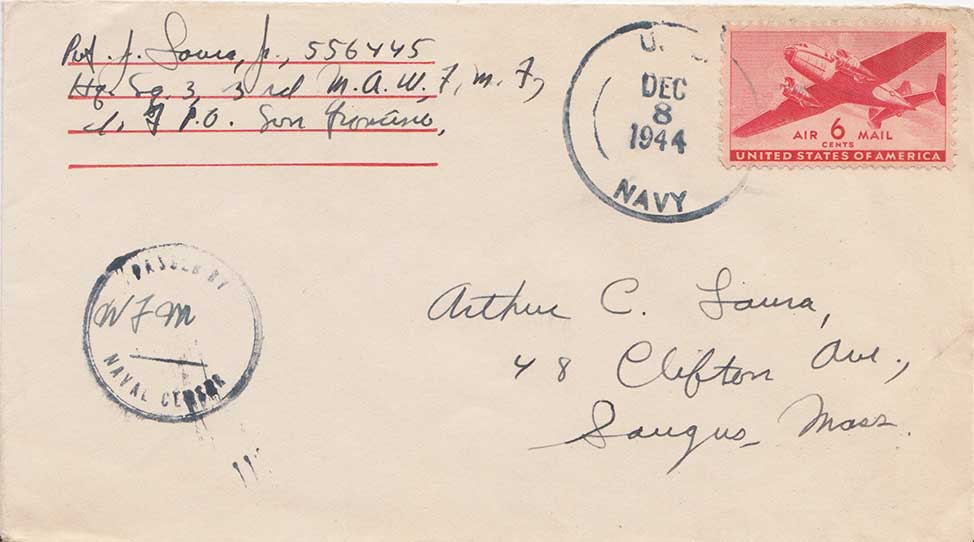 Pvt. J. Laura, Jr., 556445
Hq. Sq. 3, 3rd M.A.W., F.M.F.,
P.O. San Francisco,
U.
DEC
8
1944
NAVY
AIR 6 MAIL
CENTS
UNITED STATES OF AMERICA
PASSED BY
WFM
NAVAL CENSOR
Arthur C. Laura,
48 Clifton Ave.,
Saugus, Mass.